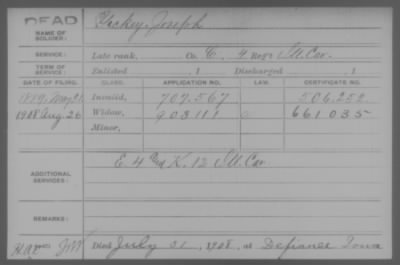 DEAD
NAME OF SOLDIER: Joseph
SERVICE: Late rank, Co. E, 4 Reg't Ill. Cav.
TERM OF SERVICE: Enlisted , 1 Discharged , 1
DATE OF FILING. CLASS. APPLICATION NO. LAW. CERTIFICATE NO.
May 21 Invalid, 707.567 506.252
1908 Aug. 26 Widow, 903111 661035
Minor,
ADDITIONAL SERVICES: E. 4 and K. 12 Ill. Cav
REMARKS:
Died July 31, 1908, at Defiance Iowa